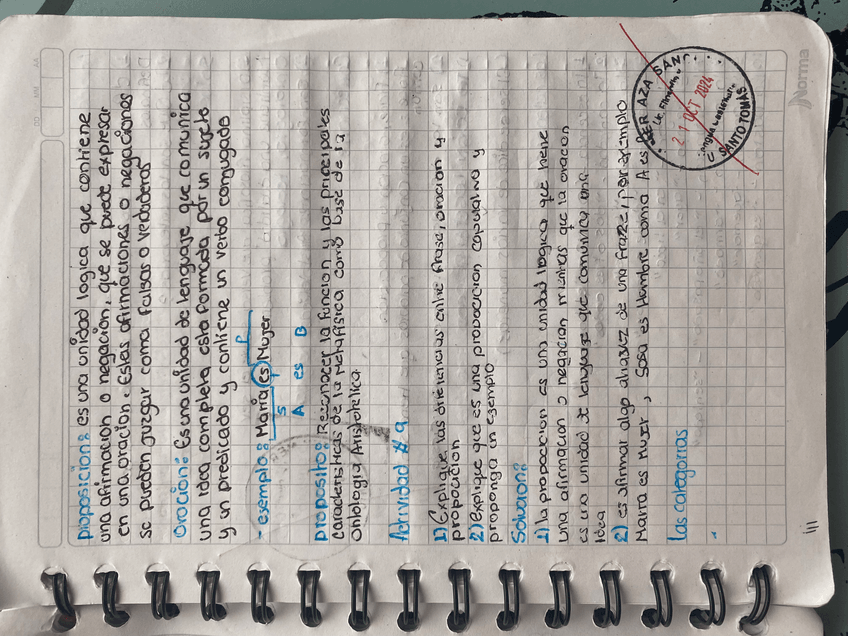 proposicion: es una unidad logica que contiene
una afirmacion o negación, que se puede expresar
en una oracion. Estas afirmaciones o negaciones
se pueden juzgar como falsas o verdaderas
oracion: Es una unidad de lenguaje que comunica
una idea completa esta formada por un sujeto
y un predicado y contiene un verbo conjugado
- exemplo: Maria es Mujer
S P
A es B
proposito: Reconocer la funcion y las principales
caracteristicas de la metafísica como base de la
ontologia Aristotelica
Actividad # 9
1) Explique las diferencias entre frase, oracion y
proposicion
2) Explique que es una proposicion copulativa y
proponga un exemplo
Solucion:
1) la proposicion es una unidad logica que tiene
una afirmacion o negacion mientras que la oracion
es una unidad de lenguaje que comunica una
idea
2) es afirmar algo atravez de una frase, por exemplo
Maria es Mujer, Sosa es Hombre como A es B
las categorias
Norma
SER AZA SAN
21 OCT 2024
SANTO TOMAS